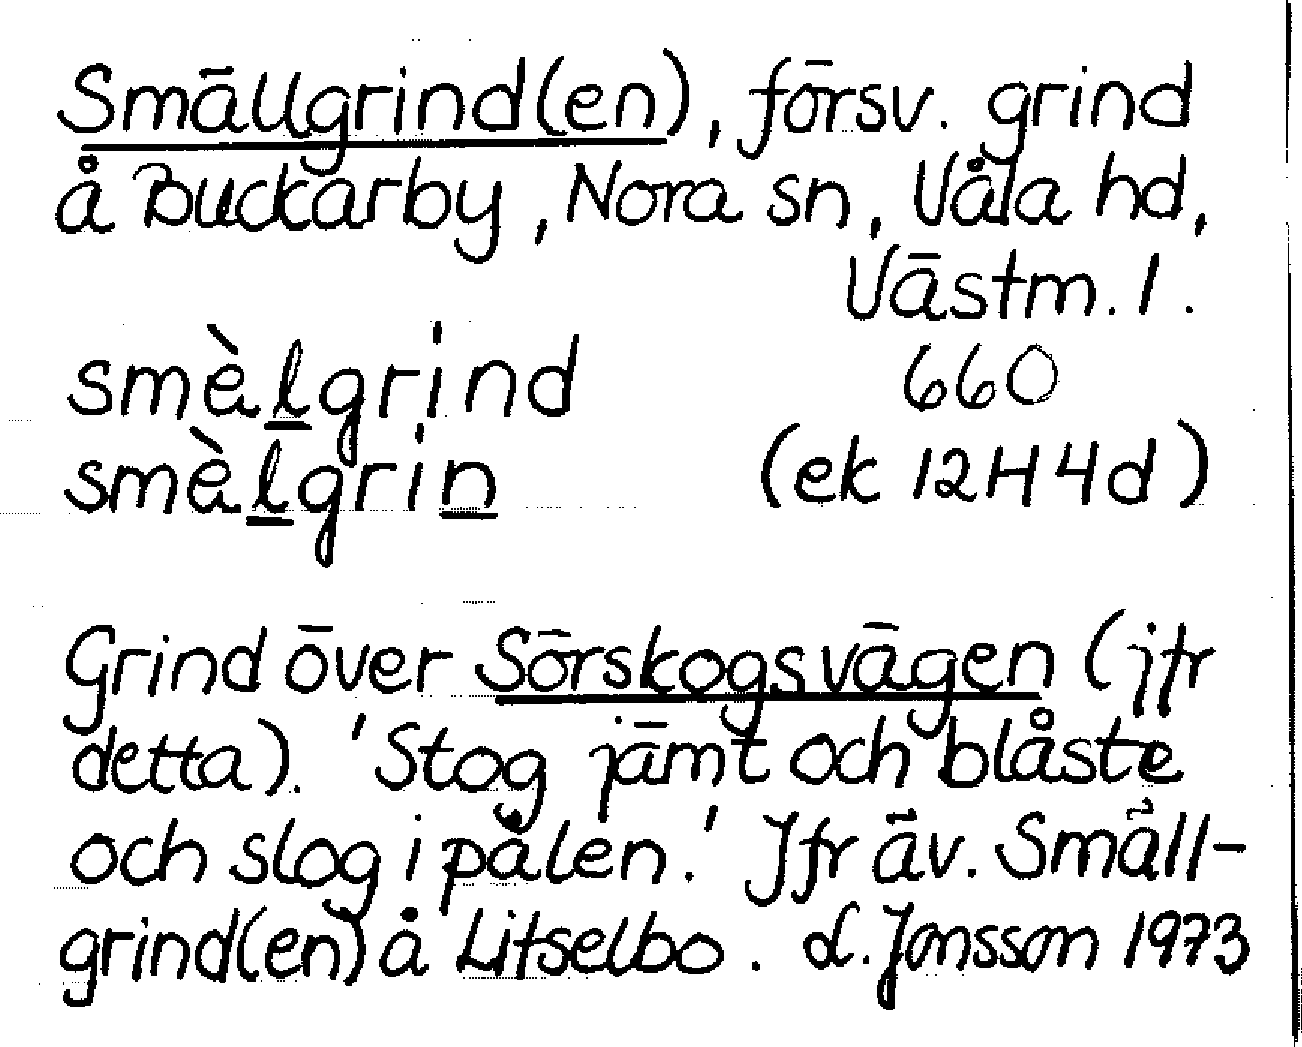 Smällgrind(en), försv. grind
å Buckarby, Nora sn, Våla hd,
Västm. l.
smèlgrind 660
smèlgrin (ek 12H4d)
Grind över Sörskogsvägen (jfr
detta). 'Stog jämt och blåste
och slog i pålen.' Jfr äv. Smäll-
grind(en) å Litselbo. d. Jonsson 1973